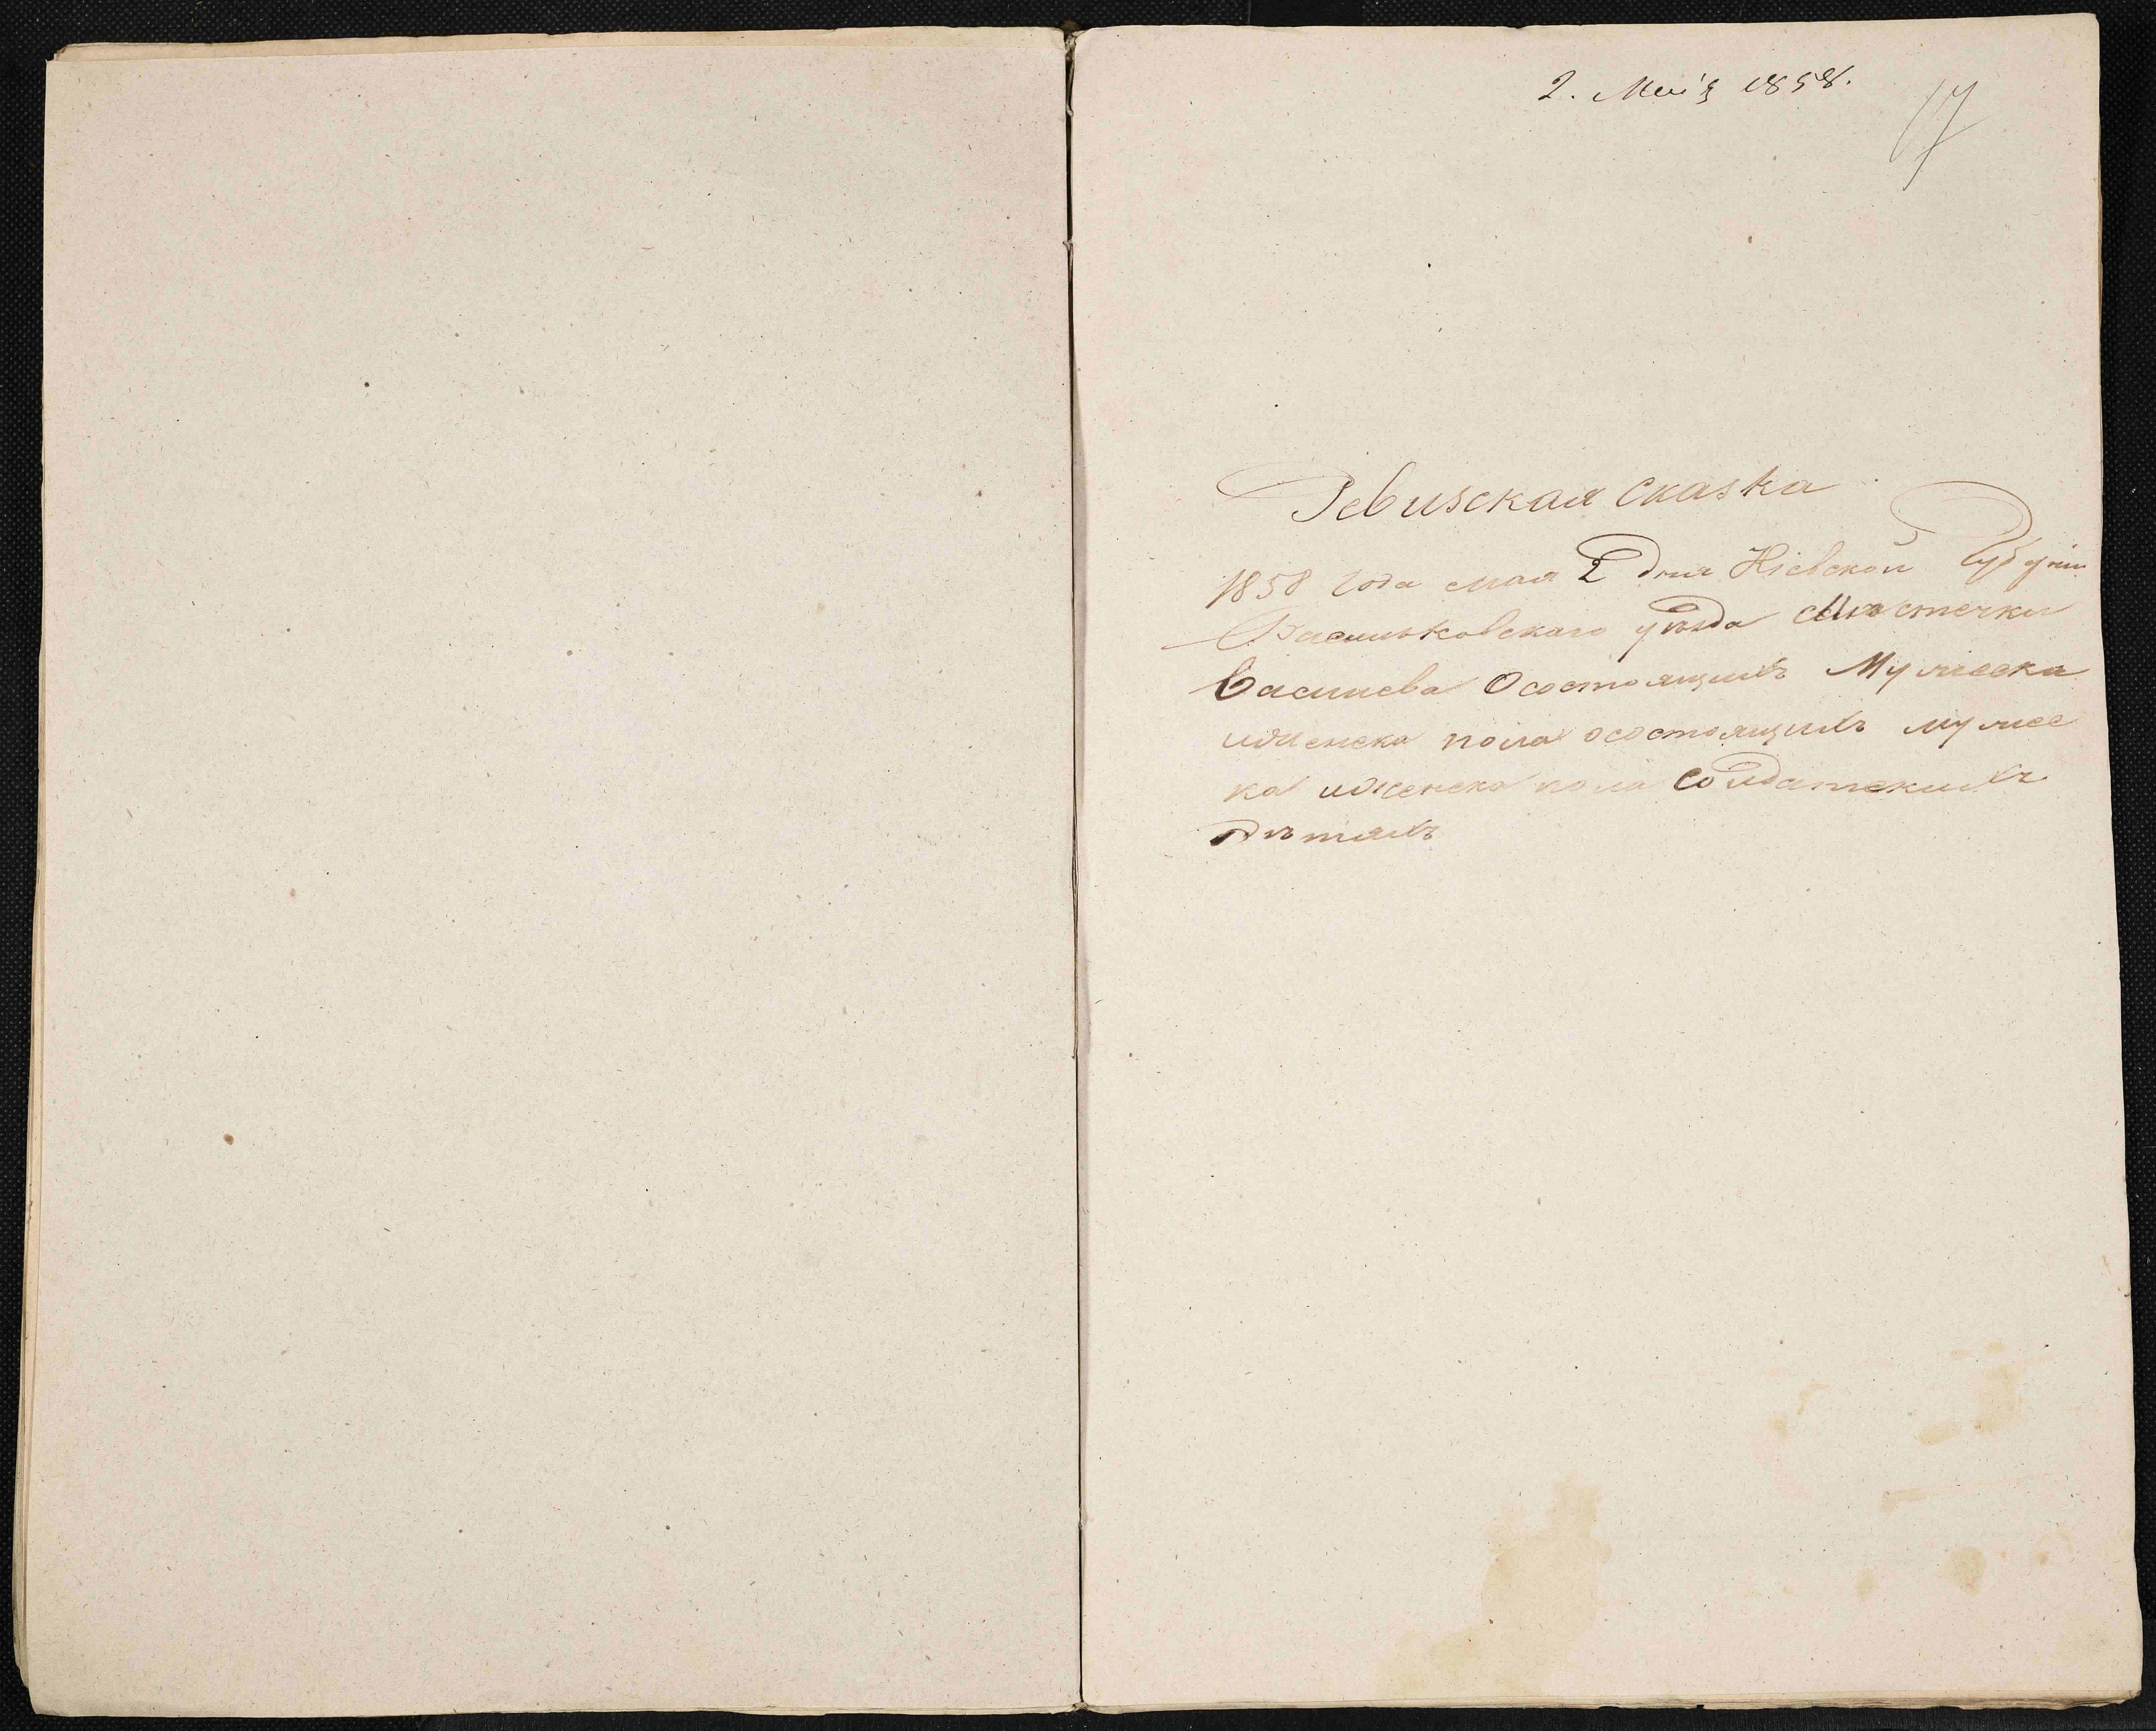 2. Маія 1858.
17
Ревизская сказка
1858 года мая 2 дня Кіевской Губерніи
Васильковскаго уѣзда Мѣстечки
Василева Осостоящихъ Мужеска
иженска пола осостоящихъ мужес
ка иженска пола Солдатскихъ
Дѣтяхъ